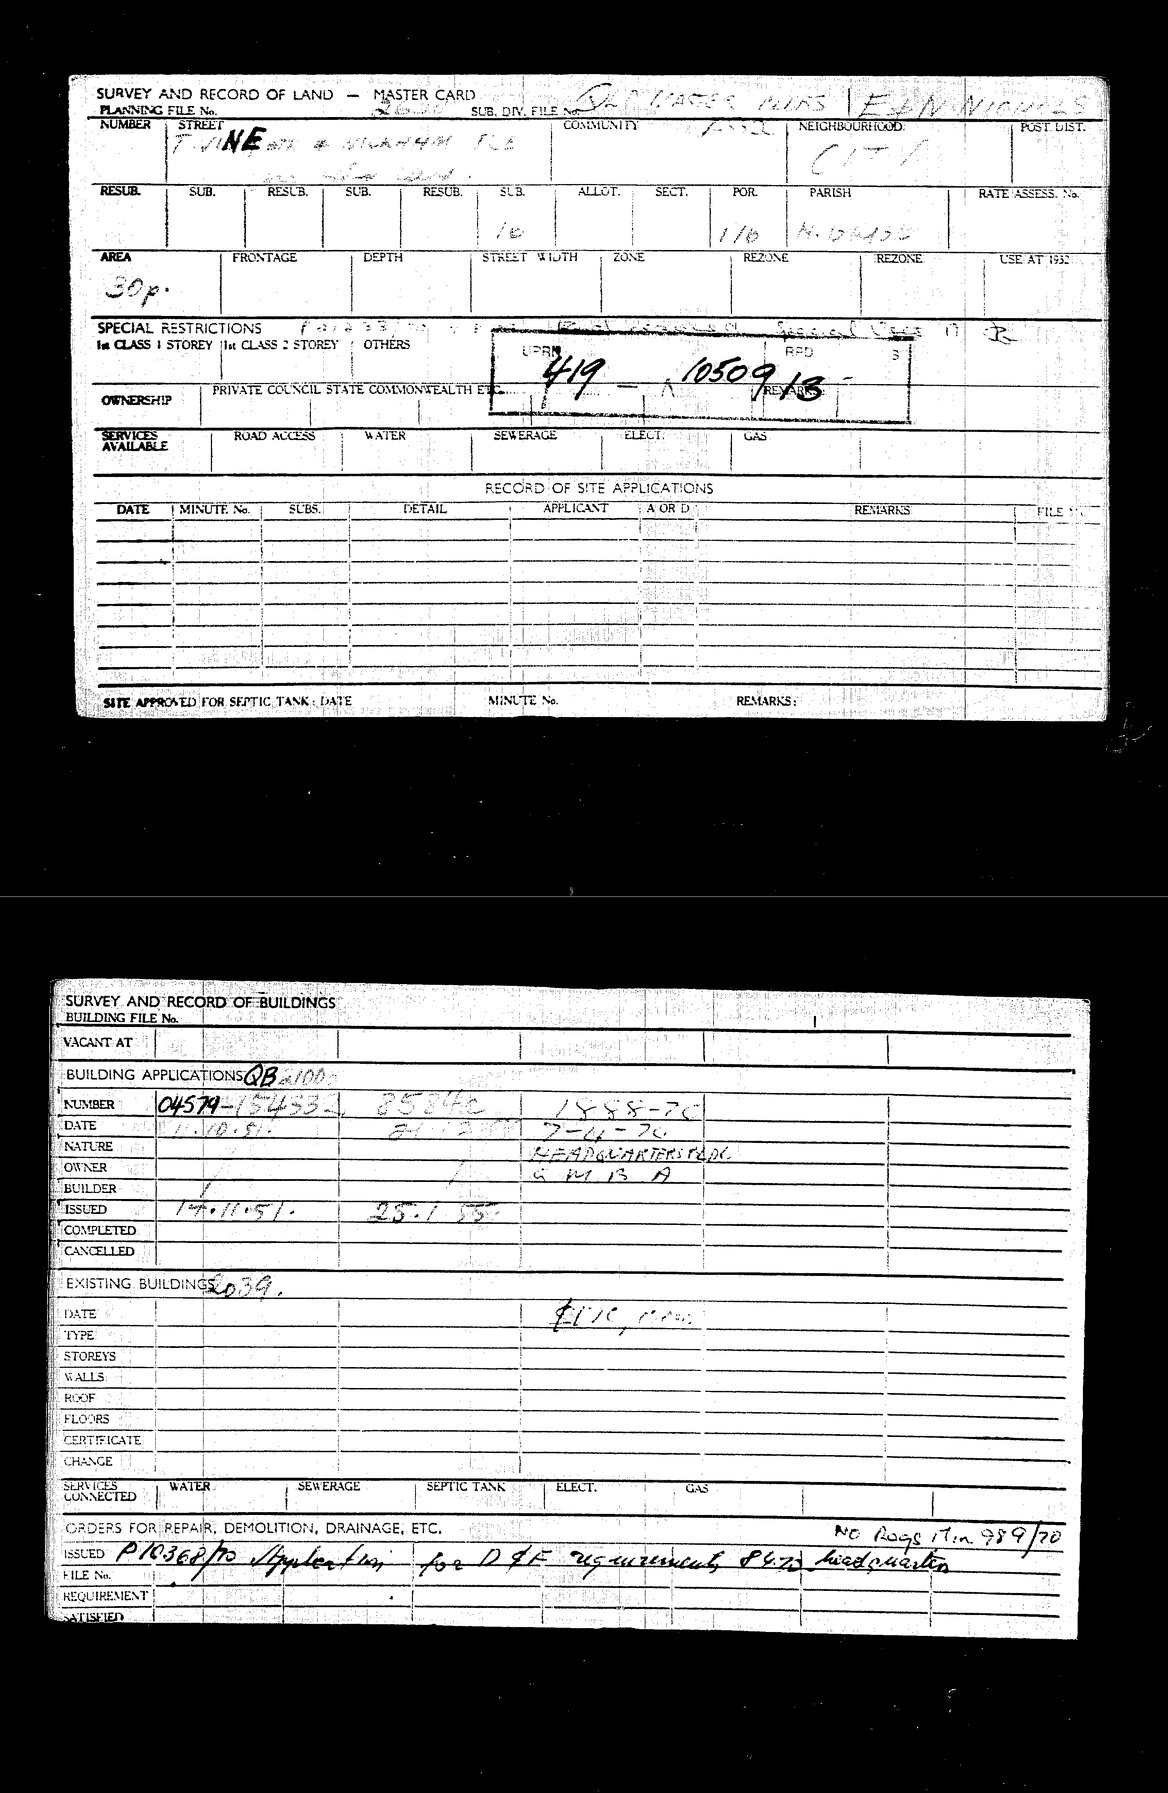 SURVEY AND RECORD OF LAND — MASTER CARD
PLANNING FILE No. SUB. DIV. FILE No.
NUMBER STREET COMMUNITY NEIGHBOURHOOD POST. DIST.
NE CITY
RESUB. SUB. RESUB. SUB. RESUB. SUB. ALLOT. SECT. POR. PARISH RATE ASSESS. No.
16 116
AREA FRONTAGE DEPTH STREET WIDTH ZONE REZONE REZONE USE AT 1932
30p.
SPECIAL RESTRICTIONS
1st CLASS 1 STOREY 1st CLASS 2 STOREY OTHERS
UPRN RPD S
419 — 10509 13
OWNERSHIP PRIVATE COUNCIL STATE COMMONWEALTH ETC. REMARKS
SERVICES AVAILABLE ROAD ACCESS WATER SEWERAGE ELECT. GAS
RECORD OF SITE APPLICATIONS
DATE MINUTE No. SUBS. DETAIL APPLICANT A OR D REMARKS FILE No.
SITE APPROVED FOR SEPTIC TANK: DATE MINUTE No. REMARKS:
SURVEY AND RECORD OF BUILDINGS
BUILDING FILE No.
VACANT AT
BUILDING APPLICATIONS QB 2100
NUMBER 04579-15433 1888-70
DATE 11.10.51. 7-4-70
NATURE HEADQUARTERS BLDG
OWNER Q M B A
BUILDER
ISSUED 14.11.51. 25.1.55.
COMPLETED
CANCELLED
EXISTING BUILDINGS 2039.
DATE
TYPE
STOREYS
WALLS
ROOF
FLOORS
CERTIFICATE
CHANGE
SERVICES CONNECTED WATER SEWERAGE SEPTIC TANK ELECT. GAS
ORDERS FOR REPAIR, DEMOLITION, DRAINAGE, ETC. No Reqs Min 989/70
ISSUED P10368/70 Application for D & E requirements 8.4.70 headquarters
FILE No.
REQUIREMENT
SATISFIED